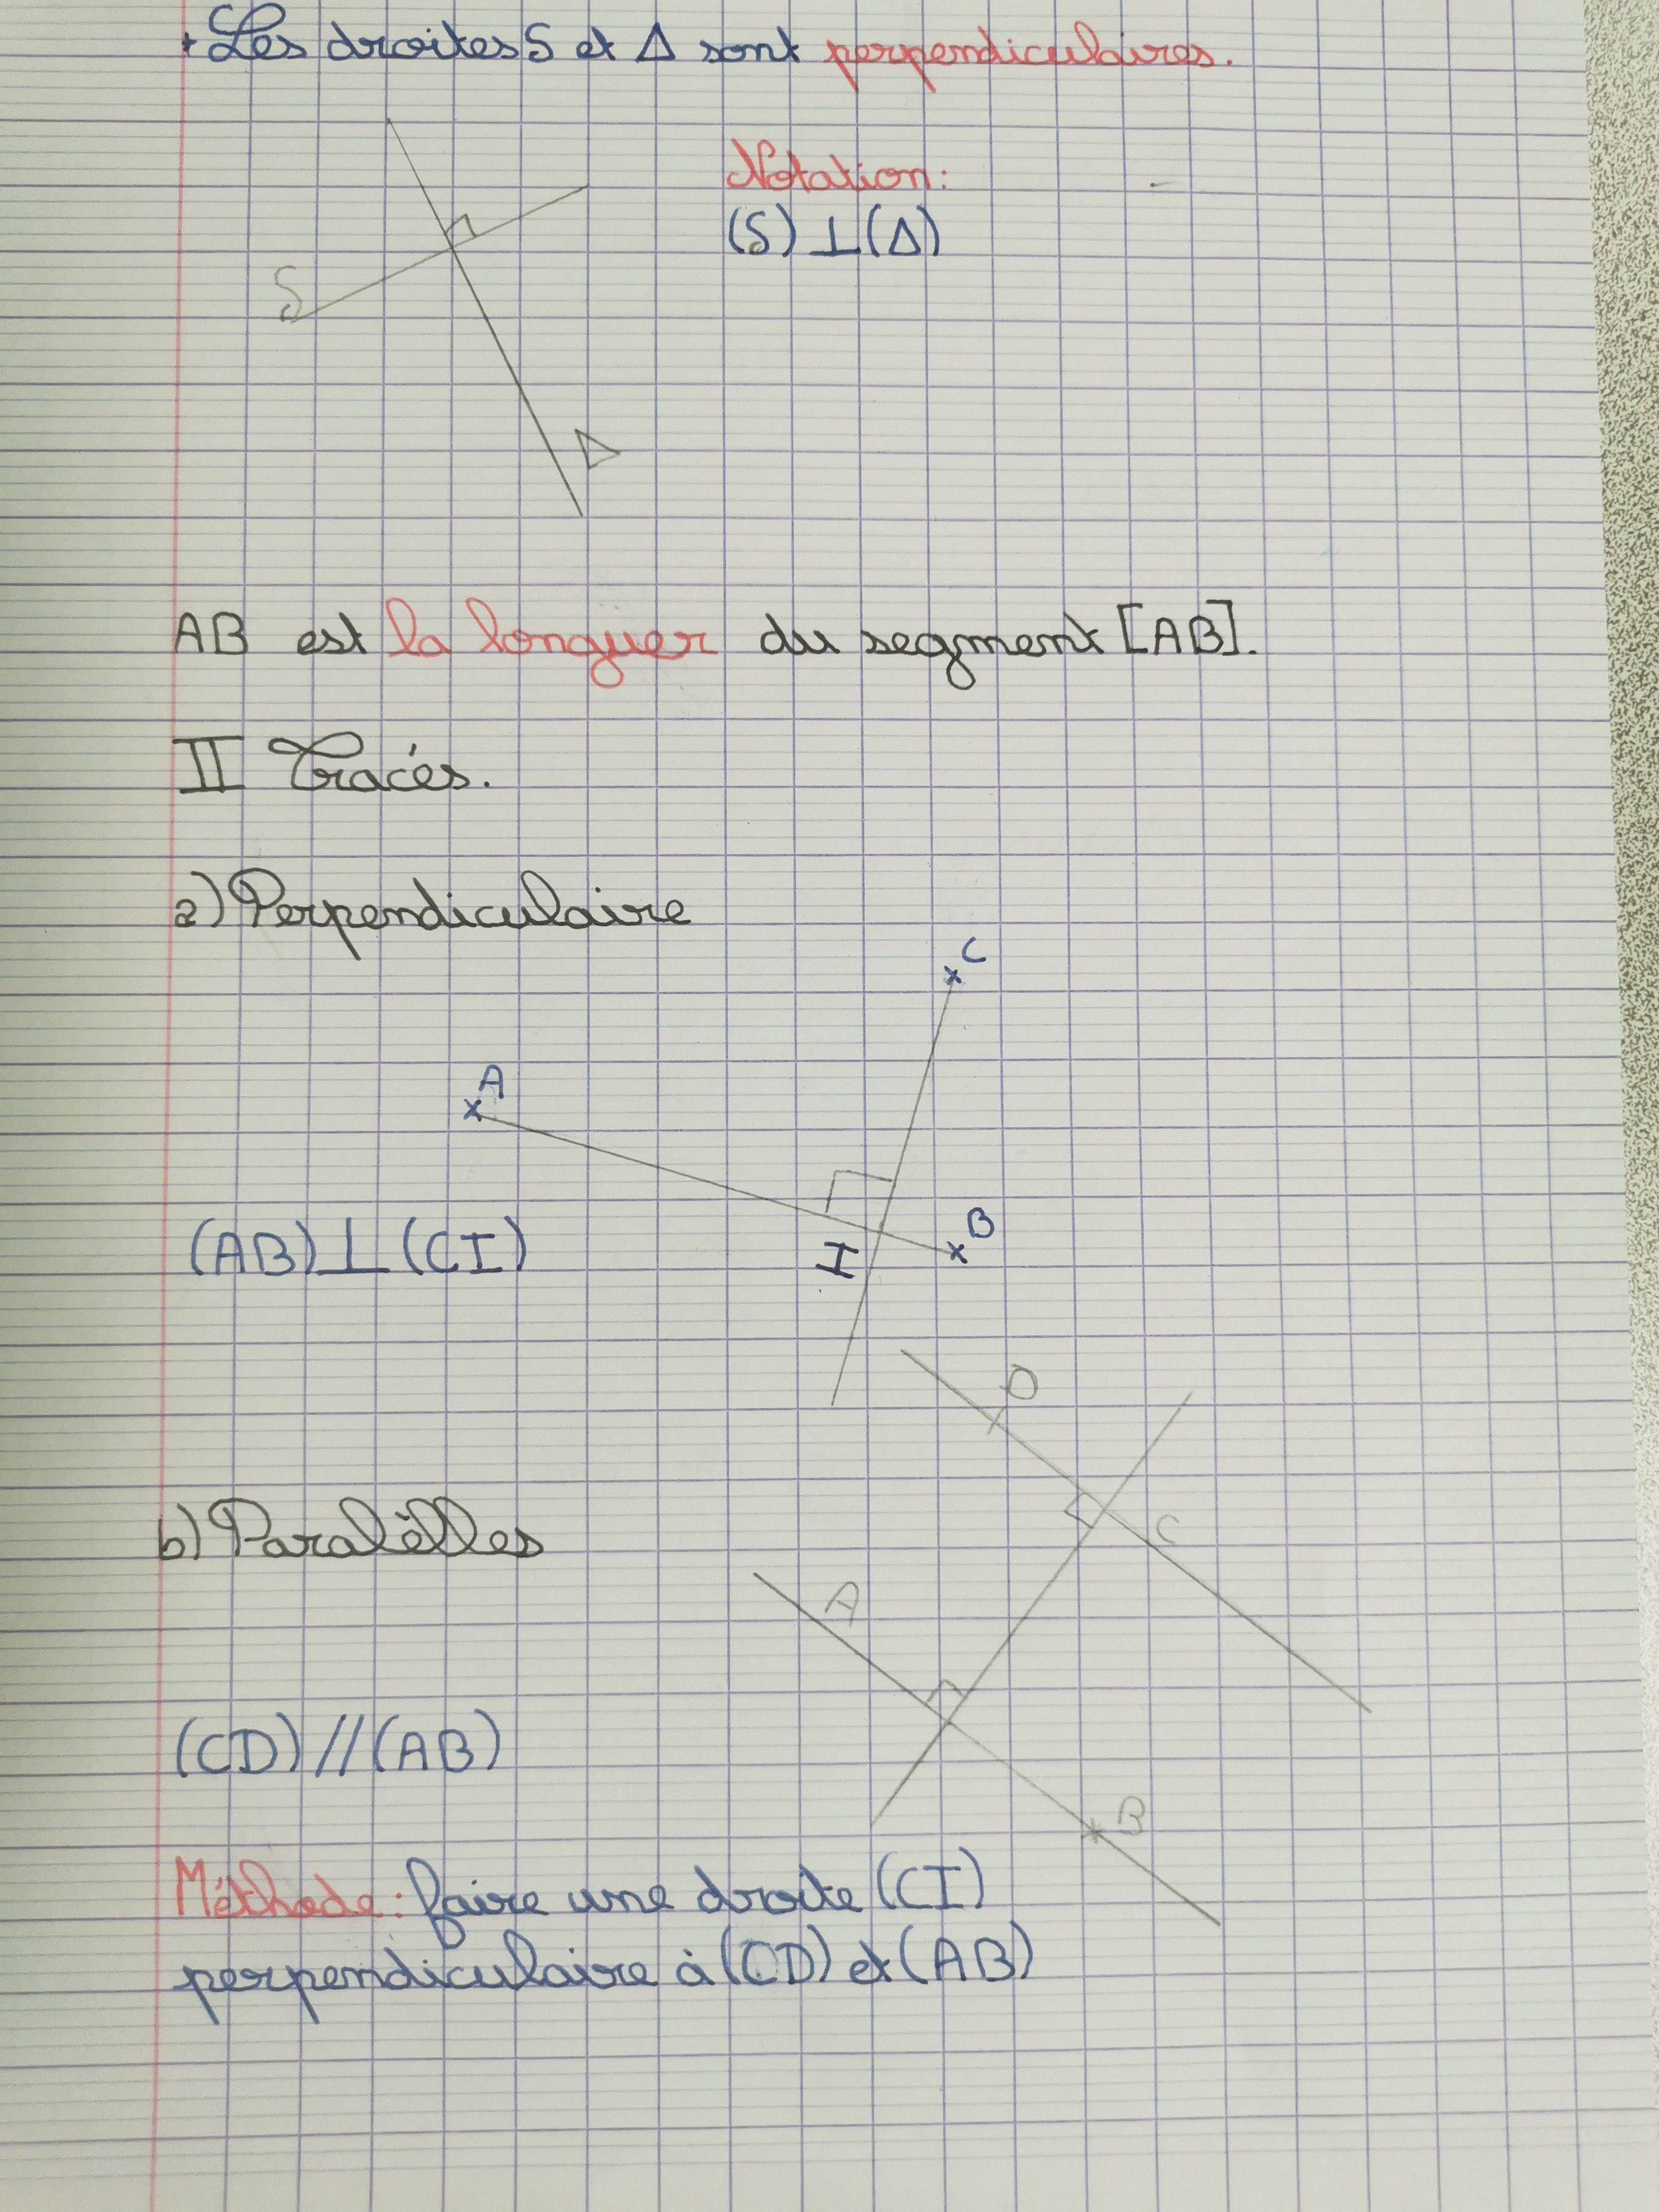 * Les droites S et Δ sont perpendiculaires.
Notation:
(S) ⊥ (Δ)
S
Δ
AB est la longuer du segment [AB].
II Tracés.
a) Perpendiculaire
C
A
B
I
(AB) ⊥ (CI)
D
C
b) Paralèlles
A
(CD) // (AB)
B
Méthode: faire une droite (CI)
perpendiculaire à (CD) et (AB)